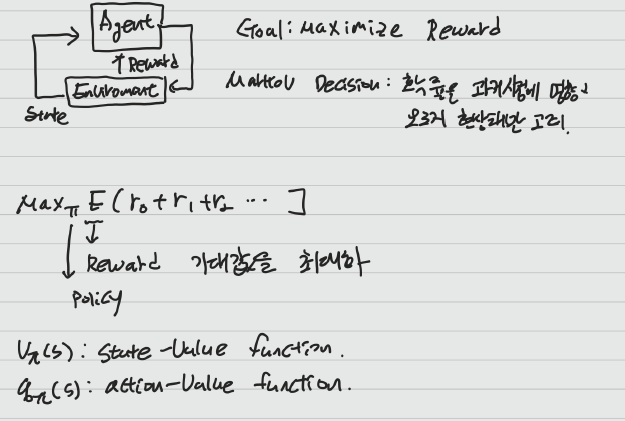 Agent
Reward
Enviroment
State
Goal: Maximize Reward
Markov Decision: 확률은 과거사정에
오로지 현상태만 고려.
Max_π E[r₀+r₁+r₂ ⋯ ]
Reward 기대값을 최대화
Policy
V_π(s): State-Value function.
q_π(s): action-Value function.